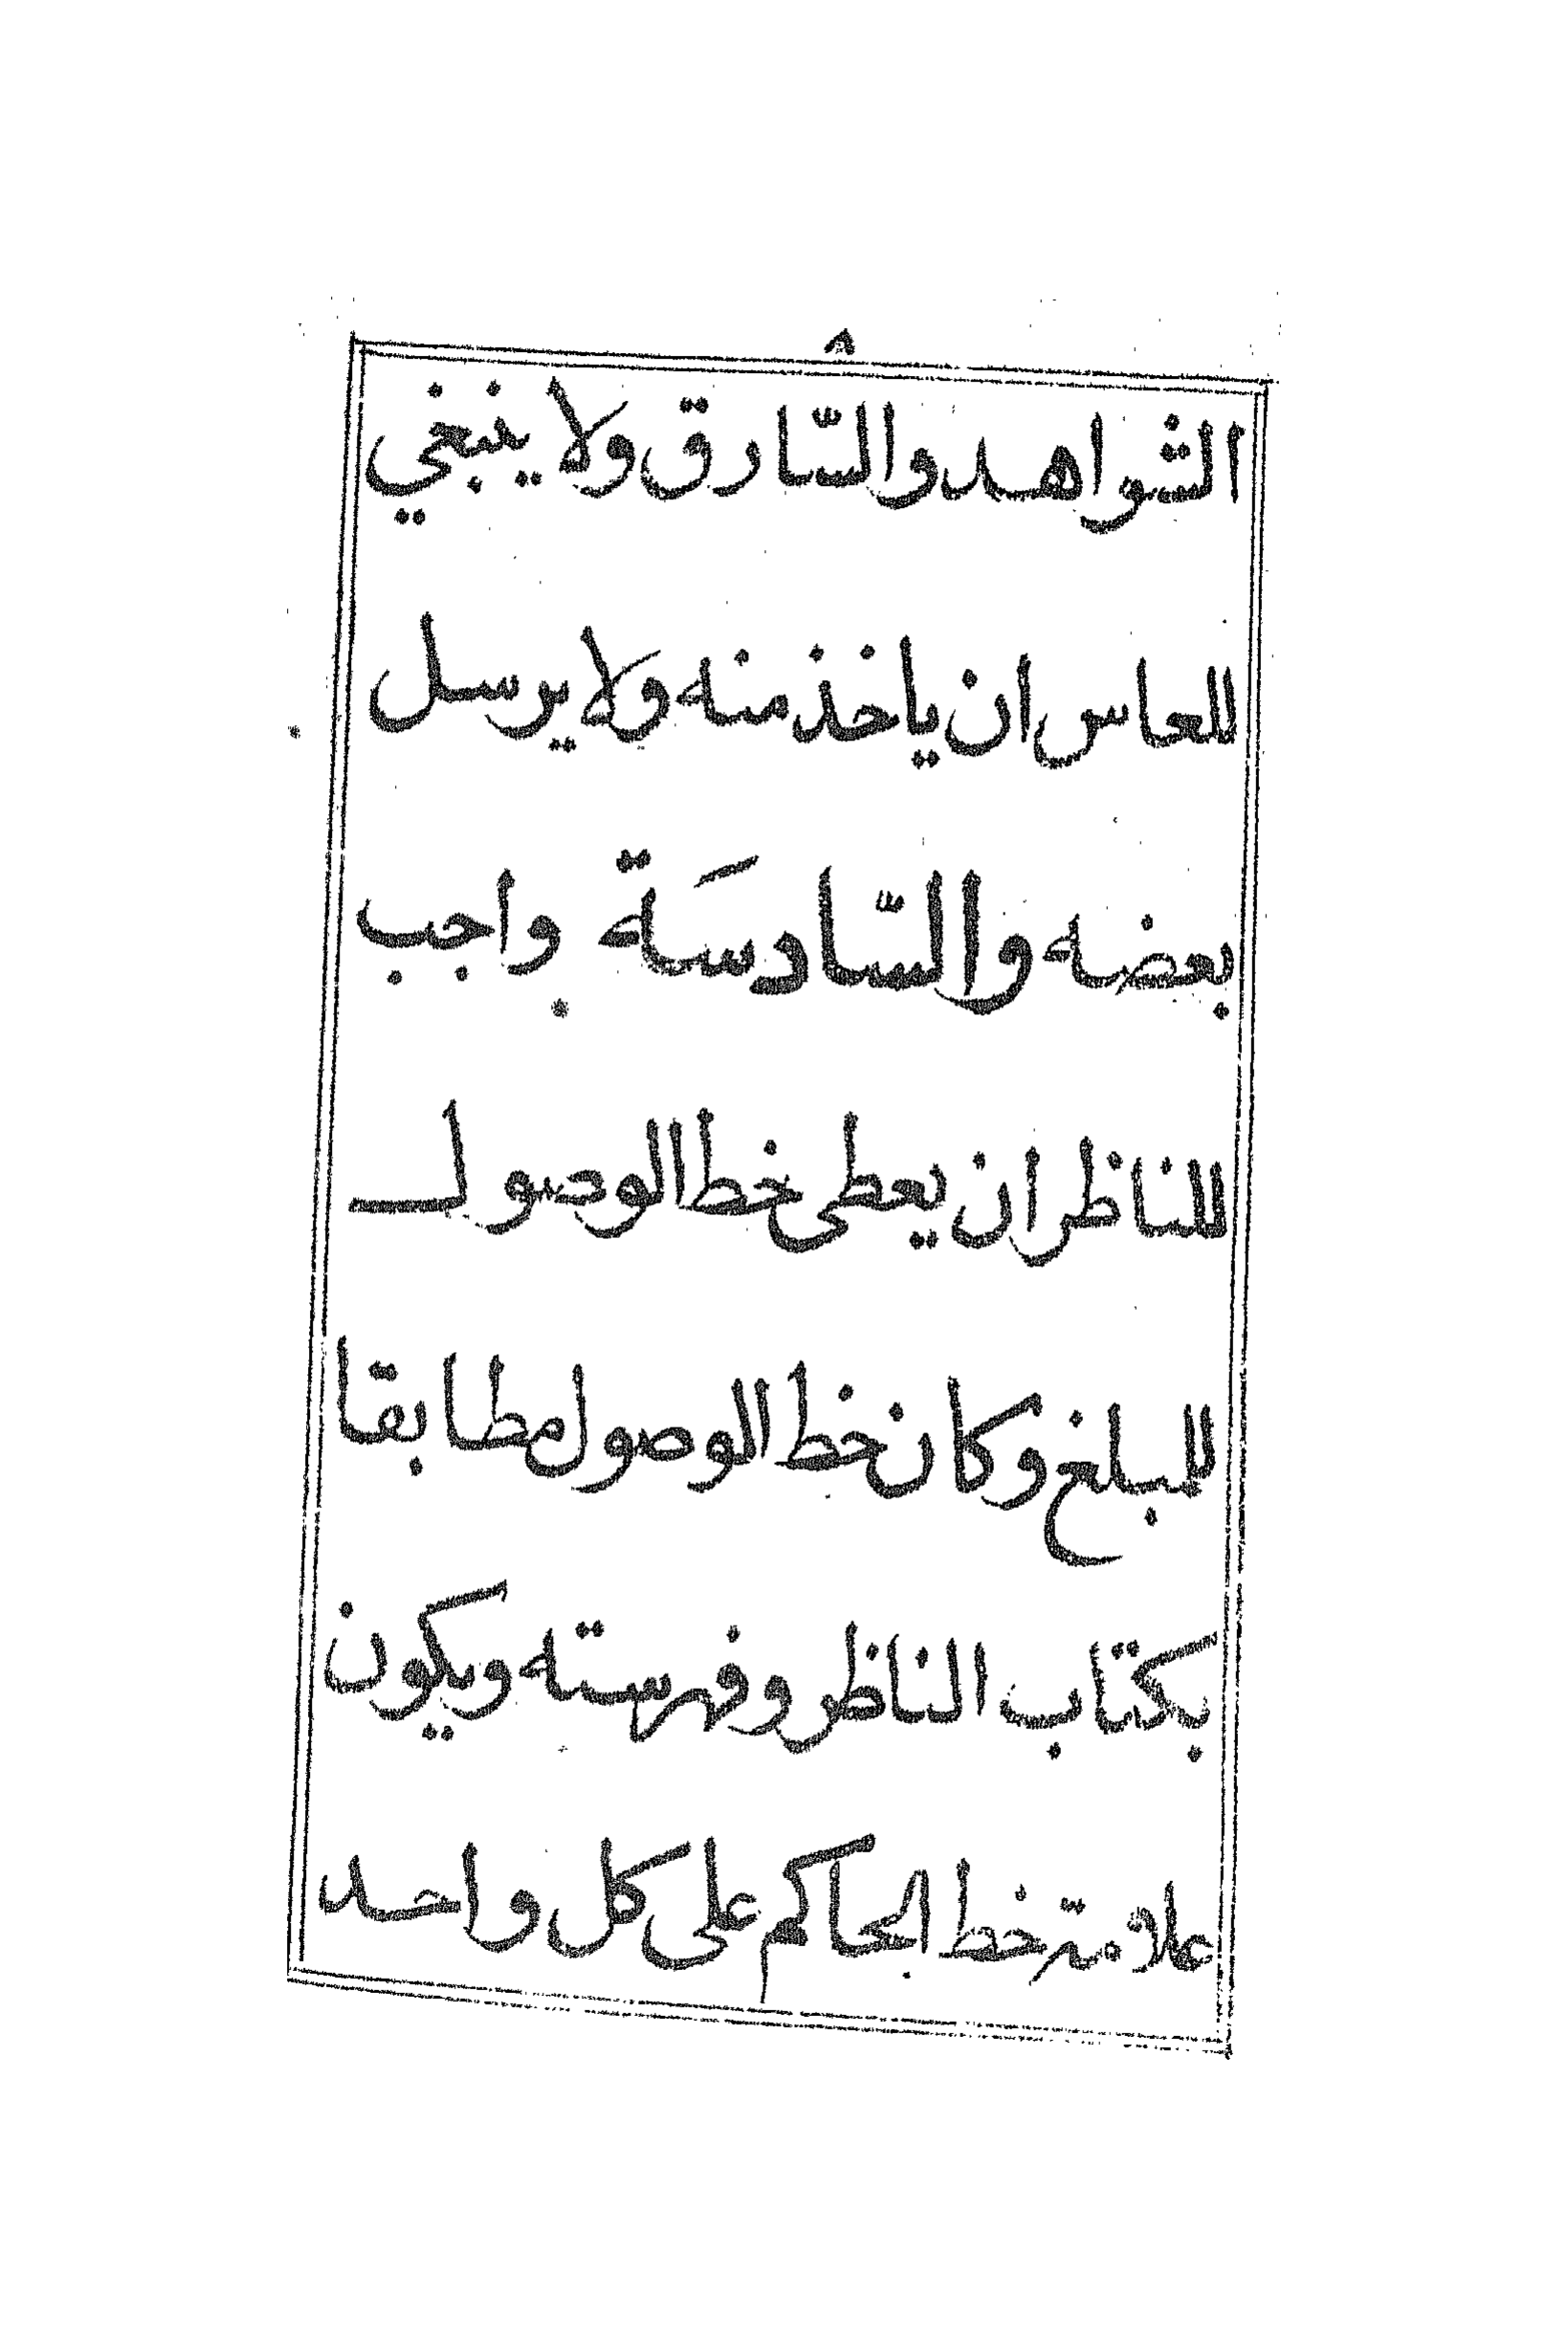 ٨
الشواهد والسّارق ولا ينبغي
للعاس ان ياخذ منه ولا يرسل
بعضه والسّادسَة واجب
للناظر ان يعطى خط الوصول
للمبلغ وكان خط الوصول مطابقا
بكتاب الناظر وفهرسته ويكون
علامة خط الحاكم على كل واحد